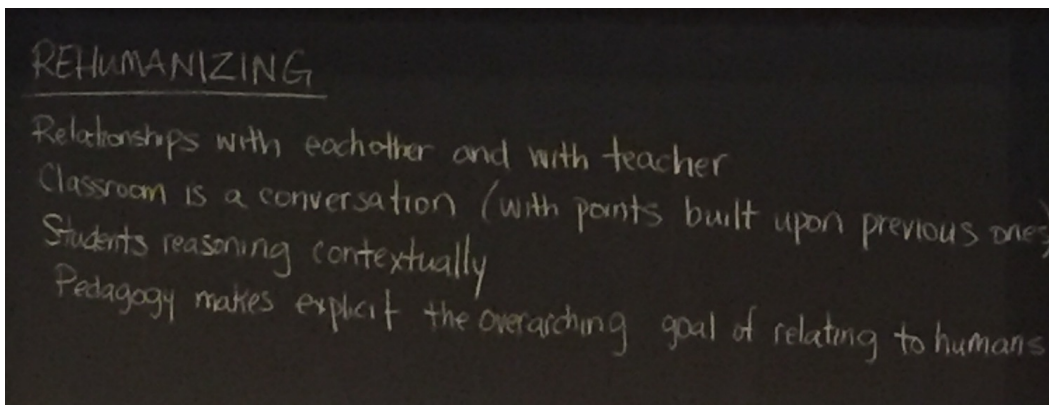 REHUMANIZING
Relationships with eachother and with teacher
Classroom is a conversation (with points built upon previous ones)
Students reasoning contextually
Pedagogy makes explicit the overarching goal of relating to humans